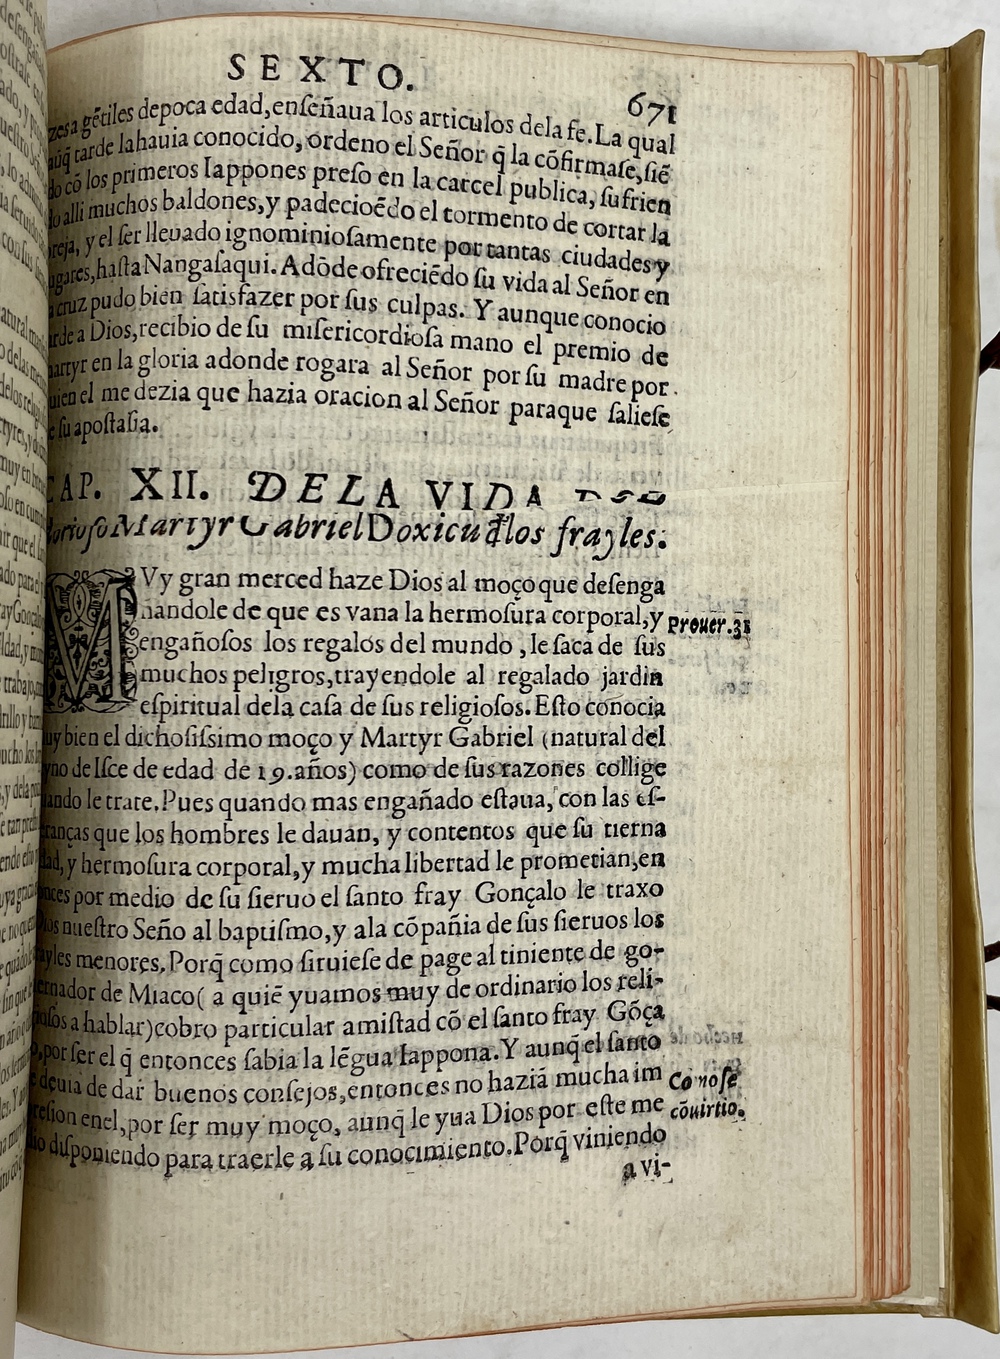 SEXTO.
671
a gẽtiles depoca edad, enſeñaua los articulos dela fe. La qual
tarde lahauia conocido, ordeno el Señor q̃ la cõfirmaſe, ſiẽ
cõ los primeros Iappones preſo en la carcel publica, ſufrien
alli muchos baldones, y padecioẽdo el tormento de cortar la
y el ſer lleuado ignominioſamente por tantas ciudades y
haſta Nangaſaqui. Adõde ofreciẽdo ſu vida al Señor en
cruz pudo bien ſatisfazer por ſus culpas. Y aunque conocio
a Dios, recibio de ſu miſericordioſa mano el premio de
en la gloria adonde rogara al Señor por ſu madre por
el me dezia que hazia oracion al Señor paraque ſalieſe
ſu apoſtaſia.
CAP. XII. DE LA VIDA
Martyr Gabriel Doxicu đlos frayles.
MVy gran merced haze Dios al moço que deſenga
ñandole de que es vana la hermoſura corporal, y
engañoſos los regalos del mundo, le ſaca de ſus
muchos peligros, trayendole al regalado jardin
eſpiritual dela caſa de ſus religioſos. Eſto conocia
bien el dichoſiſsimo moço y Martyr Gabriel (natural del
de Iſce de edad de 19. años) como de ſus razones collige
le trate. Pues quando mas engañado eſtaua, con las eſ-
que los hombres le dauan, y contentos que ſu tierna
y hermoſura corporal, y mucha libertad le prometian, en
por medio de ſu ſieruo el ſanto fray Gonçalo le traxo
nueſtro Seño al baptiſmo, y ala cõpañia de ſus ſieruos los
menores. Porq̃ como ſiruieſe de page al tiniente de go-
de Miaco ( a quiẽ yuamos muy de ordinario los reli-
a hablar) cobro particular amiſtad cõ el ſanto fray Gõça
por ſer el q̃ entonces ſabia la lẽgua Iappona. Y aunq̃ el ſanto
deuia de dar buenos conſejos, entonces no haziã mucha im
enel, por ſer muy moço, aunq̃ le yua Dios por eſte me
diſponiendo para traerle a ſu conocimiento. Porq̃ viniendo
a vi-
Prouer. 31
Como ſe
cõuirtio.